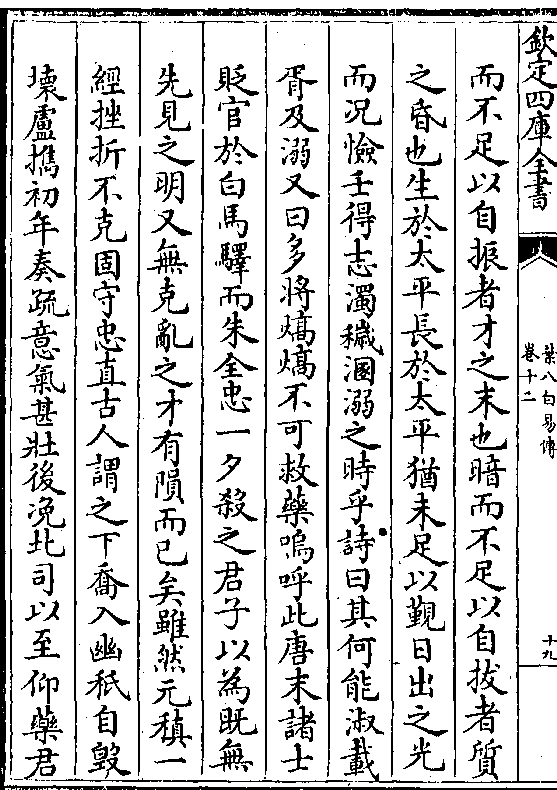 欽定四庫全書
葉八白易傳
卷十二
十九
而不足以自振者才之末也暗而不足以自拔者質
之昏也生於太平長於太平猶未足以覲日出之光
而况憸壬得志濁穢溷溺之時乎詩曰其何能淑載
胥及溺又曰多將熇熇不可救藥嗚呼此唐末諸士
貶官於白馬驛而朱全忠一夕殺之君子以為既無
先見之明又無克亂之才有隕而已矣雖然元稹一
經挫折不克固守忠直古人謂之下喬入幽秖自毁
壊盧攜初年奏疏意氣甚壯後俛北司以至仰藥君